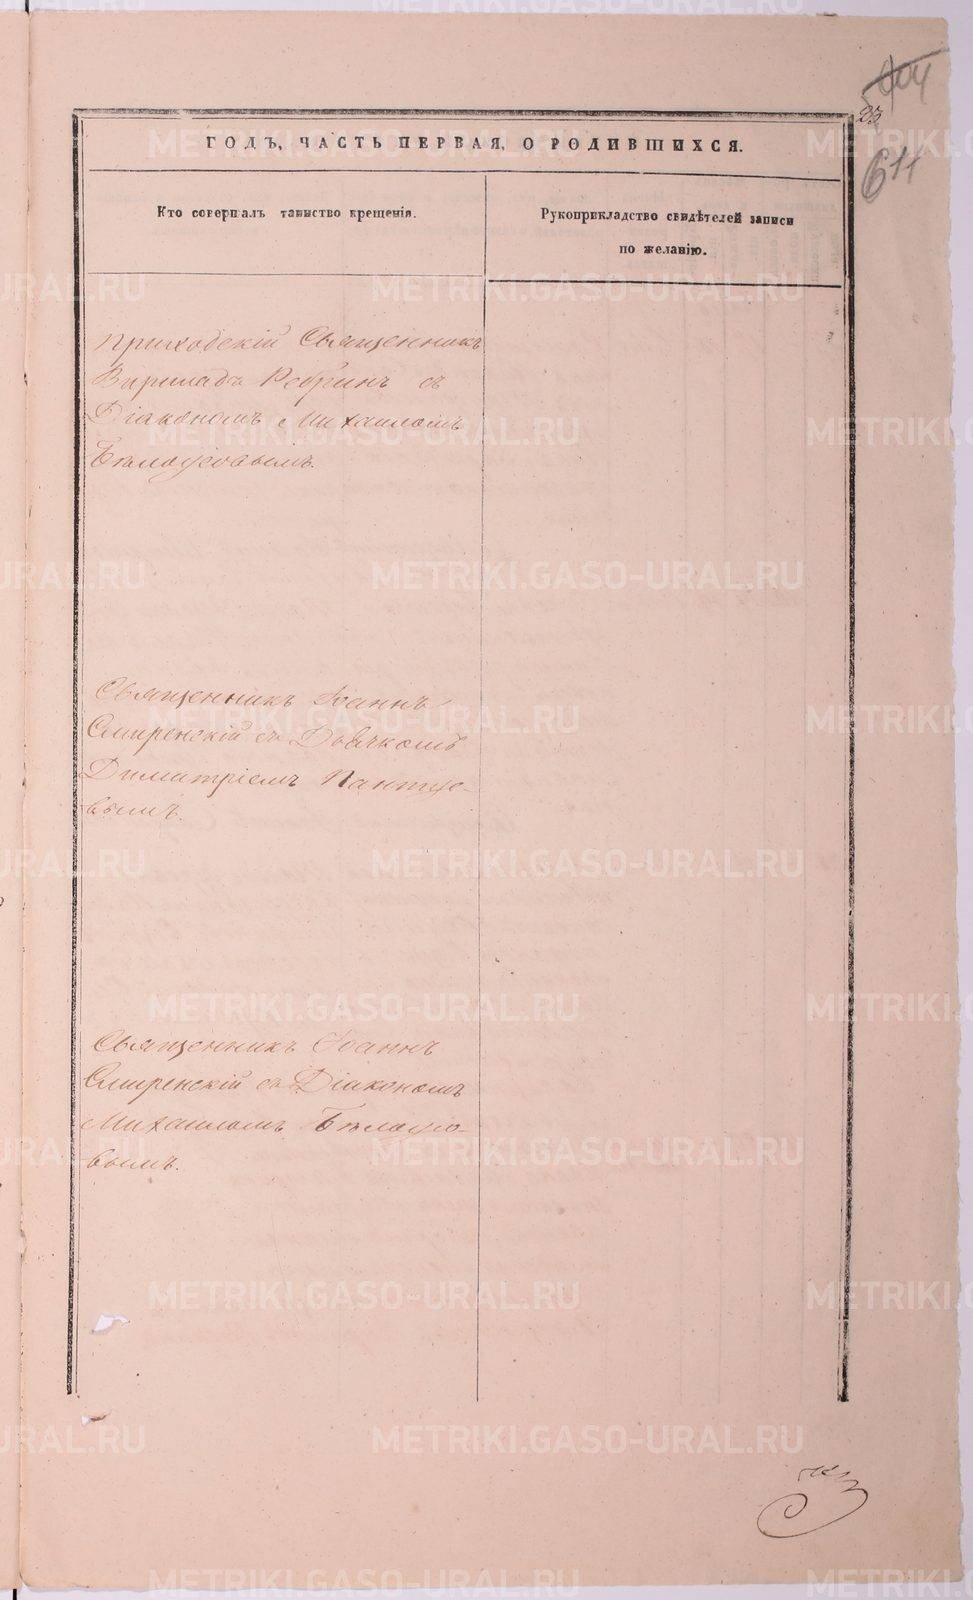 404
23
611
ГОДЪ, ЧАСТЬ ПЕРВАЯ, О РОДИВШИХСЯ.
Кто совершалъ таинство крещенія.
Рукоприкладство свидѣтелей записи
по желанію.
Приходскій Священникъ
Ребринъ съ
Діакономъ Михаиломъ
Бѣлоусовымъ.
Священникъ Іоаннъ
Смиренскій съ Дьячкомъ
Димитріемъ Пантуе-
вымъ.
Священникъ Іоаннъ
Смиренскій съ Діакономъ
Михаиломъ Бѣлоусо-
вымъ.
METRIKI.GASO-URAL.RU